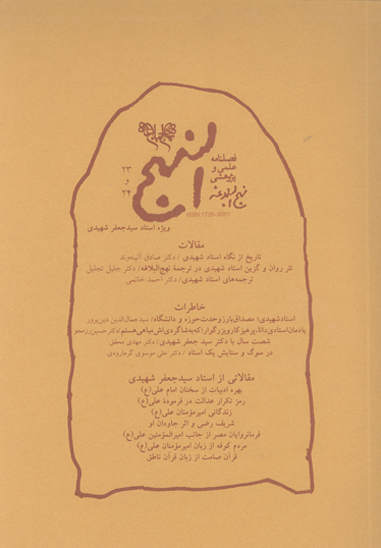 فصلنامه
علمی و
پژوهشی
نهج البلاغه
النهج
۲۳
و
۲۴
ویژه استاد سیدجعفر شهیدی
مقالات
تاریخ از نگاه استاد شهیدی / دکتر صادق آئینه‌وند
نثر روان و گزین استاد شهیدی در ترجمهٔ نهج‌البلاغه/ دکتر جلیل تجلیل
ترجمه‌های استاد شهیدی/ دکتر احمد خاتمی
خاطرات
استاد شهیدی؛ مصداق بارز وحدت حوزه و دانشگاه/ سیدجمال‌الدین دین‌پرور
شصت سال با دکتر سید جعفر شهیدی/ دکتر مهدی محقق
در سوگ و ستایش یک استاد / دکتر علی موسوی گرمارودی
مقالاتی از استاد سیدجعفر شهیدی
بهره ادبیات از سخنان امام علی(ع)
رمز تکرار عدالت در فرمودهٔ علی(ع)
زندگانی امیرمؤمنان علی(ع)
شریف رضی و اثر جاودان او
فرمانروایان مصر از جانب امیرالمؤمنین علی(ع)
مردم کوفه از زبان امیرمؤمنان علی(ع)
قرآن صامت از زبان قرآن ناطق